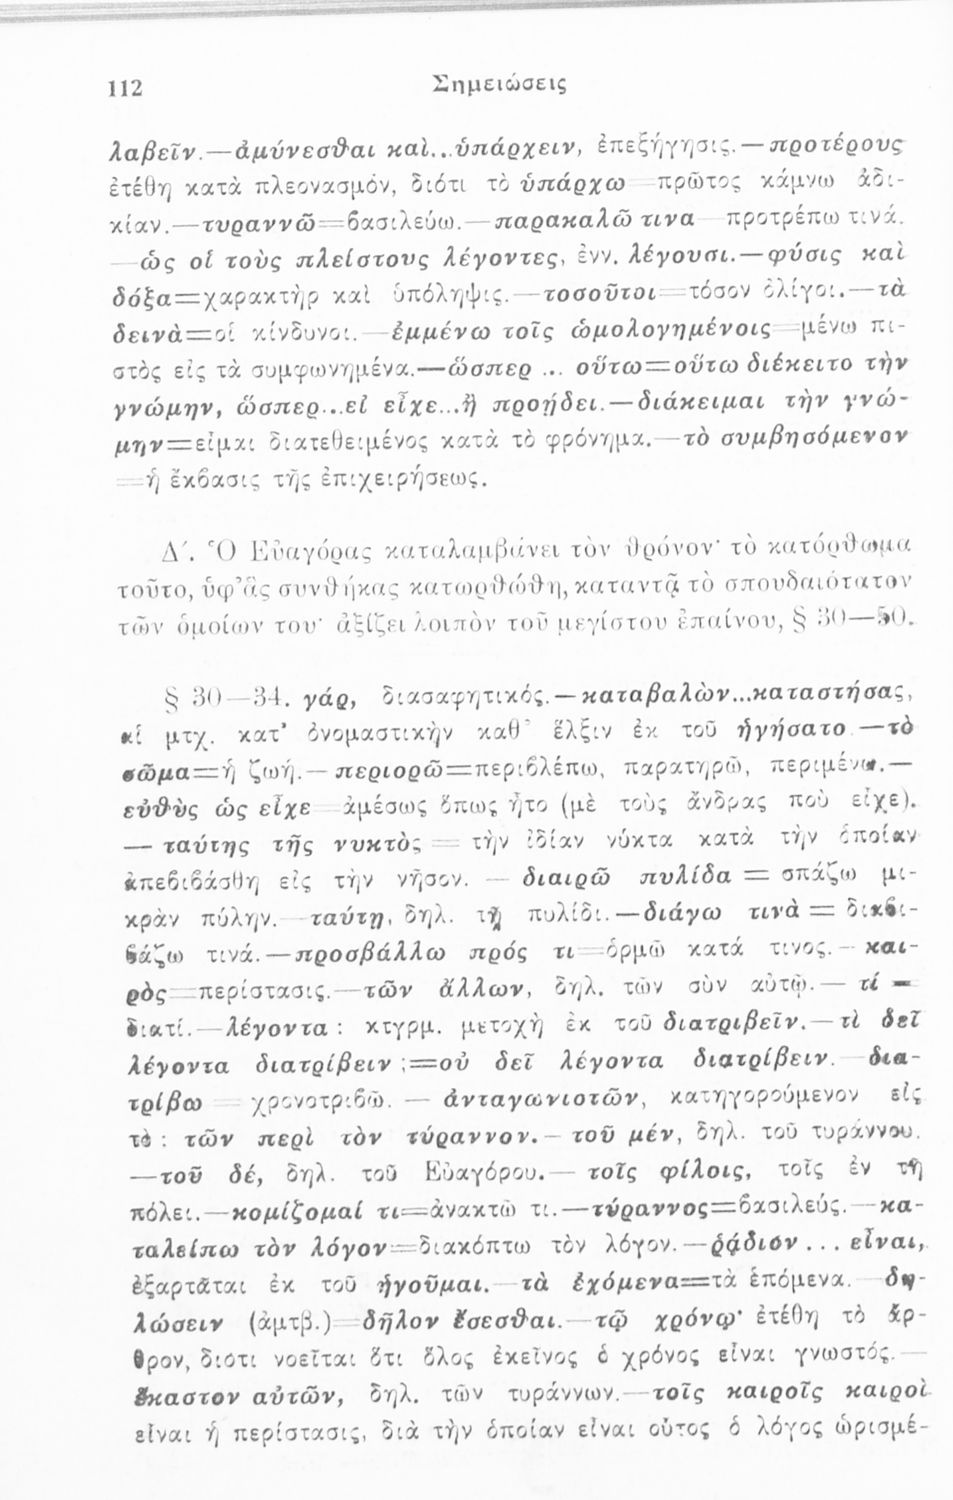 112 Σημειώσεις
λαβεῖν.—ἀμύνεσθαι καὶ...ὑπάρχειν, ἐπεξήγησις.—προτέρους
ἐτέθη κατὰ πλεονασμόν, διότι τὸ ὑπάρχω=πρῶτος κάμνω ἀδι-
κίαν.—τυραννῶ=βασιλεύω.—παρακαλῶ τινα=προτρέπω τινά.
—ὡς οἱ τοὺς πλείστους λέγοντες, ἐνν. λέγουσι.—φύσις καὶ
δόξα=χαρακτὴρ καὶ ὑπόληψις.—τοσοῦτοι=τόσον ὀλίγοι.—τὰ
δεινὰ=οἱ κίνδυνοι.—ἐμμένω τοῖς ὡμολογημένοις=μένω πι-
στὸς εἰς τὰ συμφωνημένα.—ὥσπερ ... οὕτω=οὕτω διέκειτο τὴν
γνώμην, ὥσπερ...εἰ εἶχε...ἢ προῄδει.—διάκειμαι τὴν γνώ-
μην=εἶμαι διατεθειμένος κατὰ τὸ φρόνημα.—τὸ συμβησόμενον
=ἡ ἔκβασις τῆς ἐπιχειρήσεως.
Δ΄. Ὁ Εὐαγόρας καταλαμβάνει τὸν θρόνον· τὸ κατόρθωμα
τοῦτο, ὑφ᾽ἃς συνθήκας κατωρθώθη, καταντᾷ τὸ σπουδαιότατον
τῶν ὁμοίων του· ἀξίζει λοιπὸν τοῦ μεγίστου ἐπαίνου, § 30—50.
§ 30—34. γάρ, διασαφητικός.—καταβαλὼν...καταστήσας,
αἱ μτχ. κατ᾽ ὀνομαστικὴν καθ᾽ ἕλξιν ἐκ τοῦ ἡγήσατο.—τὸ
σῶμα=ἡ ζωή.—περιορῶ=περιβλέπω, παρατηρῶ, περιμένω.—
εὐθὺς ὡς εἶχε=ἀμέσως ὅπως ἦτο (μὲ τοὺς ἄνδρας ποὺ εἶχε).
— ταύτης τῆς νυκτὸς = τὴν ἰδίαν νύκτα κατὰ τὴν ὁποίαν
ἀπεβιβάσθη εἰς τὴν νῆσον. — διαιρῶ πυλίδα = σπάζω μι-
κρὰν πύλην.—ταύτῃ, δηλ. τῇ πυλίδι.—διάγω τινὰ = διαβι-
βάζω τινά.—προσβάλλω πρός τι=ὁρμῶ κατά τινος.—και-
ρὸς=περίστασις.—τῶν ἄλλων, δηλ. τῶν σὺν αὐτῷ.—τί =
διατί.—λέγοντα : κτγρμ. μετοχὴ ἐκ τοῦ διατριβεῖν.—τὶ δεῖ
λέγοντα διατρίβειν ;=οὐ δεῖ λέγοντα διατρίβειν.—δια-
τρίβω = χρονοτριβῶ. — ἀνταγωνιστῶν, κατηγορούμενον εἰς
τὸ : τῶν περὶ τὸν τύραννον.—τοῦ μέν, δηλ. τοῦ τυράννου.
—τοῦ δέ, δηλ. τοῦ Εὐαγόρου.—τοῖς φίλοις, τοῖς ἐν τῇ
πόλει.—κομίζομαί τι=ἀνακτῶ τι.—τύραννος=βασιλεύς.—κα-
ταλείπω τὸν λόγον=διακόπτω τὸν λόγον.—ῥᾴδιον ... εἶναι,
ἐξαρτᾶται ἐκ τοῦ ἡγοῦμαι.—τὰ ἐχόμενα=τὰ ἑπόμενα.—δη-
λώσειν (ἀμτβ.)=δῆλον ἔσεσθαι.—τῷ χρόνῳ· ἐτέθη τὸ ἄρ-
θρον, διότι νοεῖται ὅτι ὅλος ἐκεῖνος ὁ χρόνος εἶναι γνωστός.—
ἕκαστον αὐτῶν, δηλ. τῶν τυράννων.—τοῖς καιροῖς καιροὶ
εἶναι ἡ περίστασις, διὰ τὴν ὁποίαν εἶναι οὗτος ὁ λόγος ὡρισμέ-